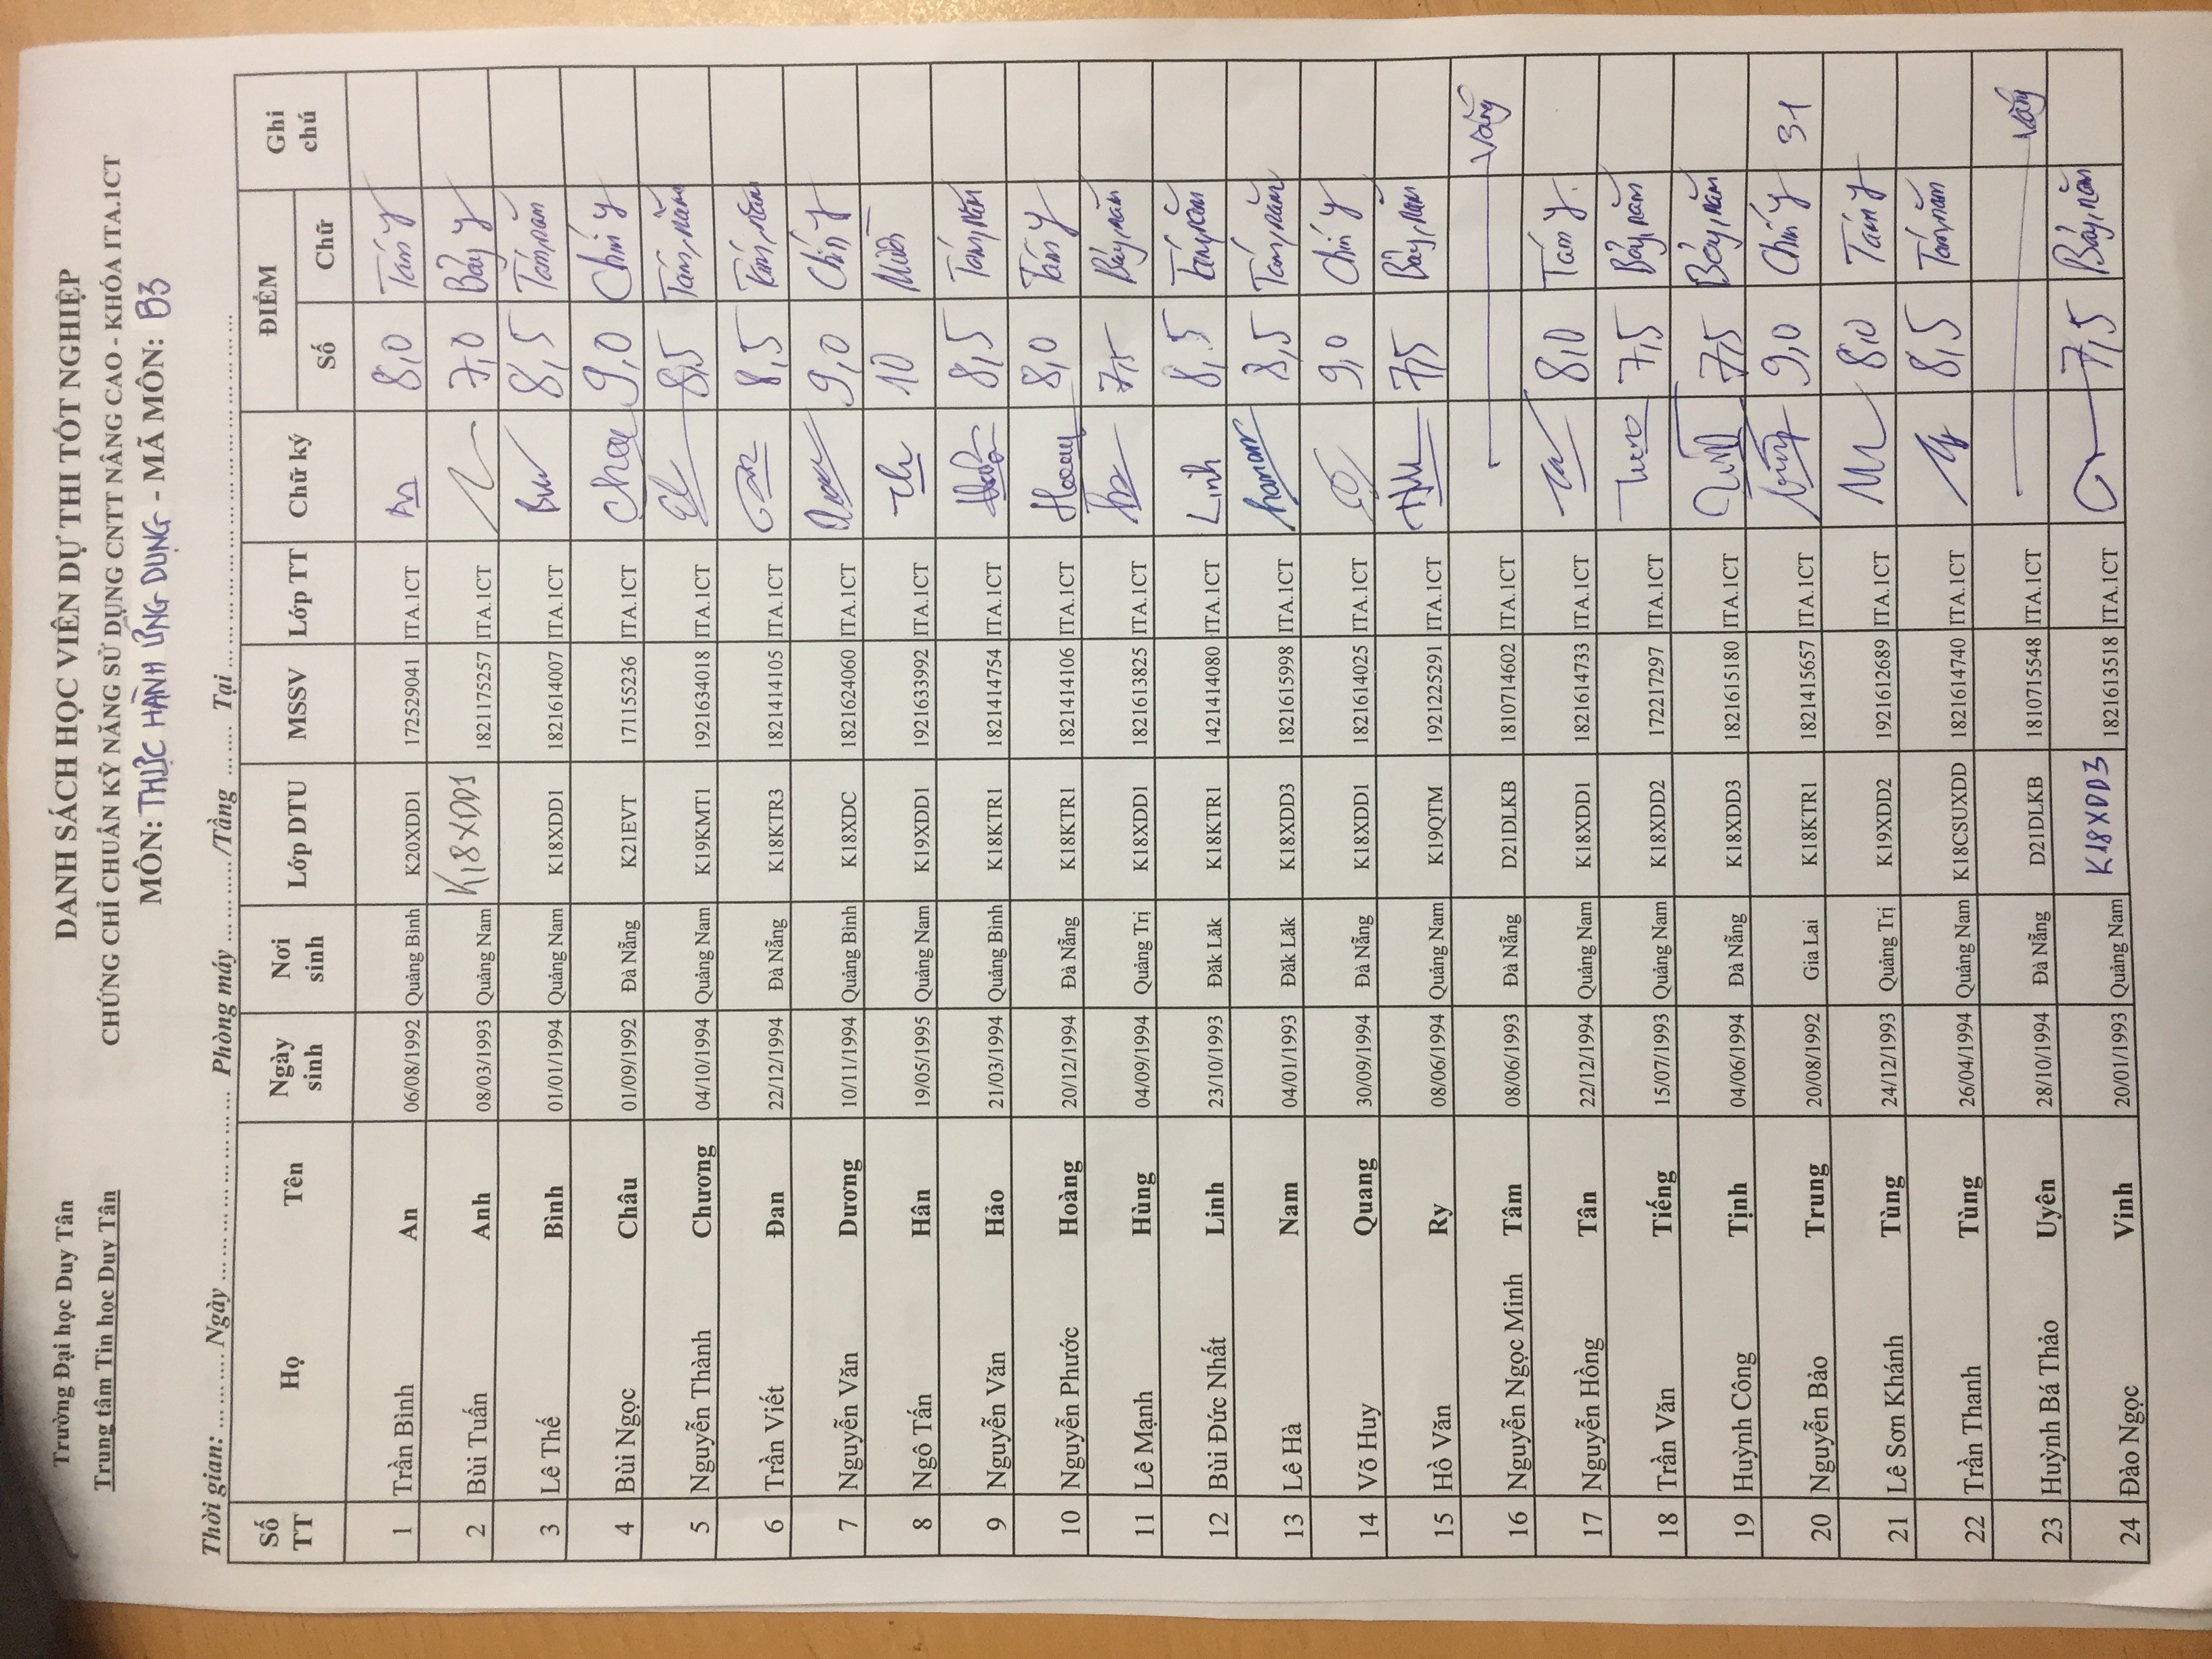 Trường Đại học Duy Tân
Trung tâm Tin học Duy Tân
DANH SÁCH HỌC VIÊN DỰ THI TỐT NGHIỆP
CHỨNG CHỈ CHUẨN KỸ NĂNG SỬ DỤNG CNTT NÂNG CAO - KHÓA ITA.1CT
MÔN: THỰC HÀNH ỨNG DỤNG - MÃ MÔN: B3
Thời gian: ......... Ngày ......... Phòng máy ......... /Tầng ......... Tại .........
Số TT Họ Tên Ngày sinh Nơi sinh Lớp DTU MSSV Lớp TT Chữ ký ĐIỂM Ghi chú
Số Chữ
1 Trần Bình An 06/08/1992 Quảng Bình K20XDD1 172529041 ITA.1CT 8,0 Tám y
2 Bùi Tuấn Anh 08/03/1993 Quảng Nam K18XDD1 1821175257 ITA.1CT 7,0 Bảy y
3 Lê Thế Bình 01/01/1994 Quảng Nam K18XDD1 1821614007 ITA.1CT 8,5 Tám,năm
4 Bùi Ngọc Châu 01/09/1992 Đà Nẵng K21EVT 171155236 ITA.1CT 9,0 Chín y
5 Nguyễn Thành Chương 04/10/1994 Quảng Nam K19KMT1 1921634018 ITA.1CT 8,5 Tám,năm
6 Trần Viết Đan 22/12/1994 Đà Nẵng K18KTR3 1821414105 ITA.1CT 8,5 Tám,năm
7 Nguyễn Văn Dương 10/11/1994 Quảng Bình K18XDC 1821624060 ITA.1CT 9,0 Chín y
8 Ngô Tấn Hân 19/05/1995 Quảng Nam K19XDD1 1921633992 ITA.1CT 10 Mười
9 Nguyễn Văn Hảo 21/03/1994 Quảng Bình K18KTR1 1821414754 ITA.1CT 8,5 Tám,năm
10 Nguyễn Phước Hoàng 20/12/1994 Đà Nẵng K18KTR1 1821414106 ITA.1CT Hoang 8,0 Tám y
11 Lê Mạnh Hùng 04/09/1994 Quảng Trị K18XDD1 1821613825 ITA.1CT 7,5 Bảy,năm
12 Bùi Đức Nhất Linh 23/10/1993 Đăk Lăk K18KTR1 1421414080 ITA.1CT Linh 8,5 Tám,năm
13 Lê Hà Nam 04/01/1993 Đăk Lăk K18XDD3 1821615998 ITA.1CT hanam 8,5 Tám,năm
14 Võ Huy Quang 30/09/1994 Đà Nẵng K18XDD1 1821614025 ITA.1CT 9,0 Chín y
15 Hồ Văn Ry 08/06/1994 Quảng Nam K19QTM 1921225291 ITA.1CT 7,5 Bảy,năm
16 Nguyễn Ngọc Minh Tâm 08/06/1993 Đà Nẵng D21DLKB 1810714602 ITA.1CT Vắng
17 Nguyễn Hồng Tân 22/12/1994 Quảng Nam K18XDD1 1821614733 ITA.1CT 8,0 Tám y
18 Trần Văn Tiếng 15/07/1993 Quảng Nam K18XDD2 172217297 ITA.1CT 7,5 Bảy,năm
19 Huỳnh Công Tịnh 04/06/1994 Đà Nẵng K18XDD3 1821615180 ITA.1CT 7,5 Bảy,năm
20 Nguyễn Bảo Trung 20/08/1992 Gia Lai K18KTR1 1821415657 ITA.1CT 9,0 Chín y 31
21 Lê Sơn Khánh Tùng 24/12/1993 Quảng Trị K19XDD2 1921612689 ITA.1CT 8,0 Tám y
22 Trần Thanh Tùng 26/04/1994 Quảng Nam K18CSUXDD 1821614740 ITA.1CT 8,5 Tám,năm
23 Huỳnh Bá Thảo Uyên 28/10/1994 Đà Nẵng D21DLKB 1810715548 ITA.1CT Vắng
24 Đào Ngọc Vinh 20/01/1993 Quảng Nam K18XDD3 1821613518 ITA.1CT 7,5 Bảy,năm